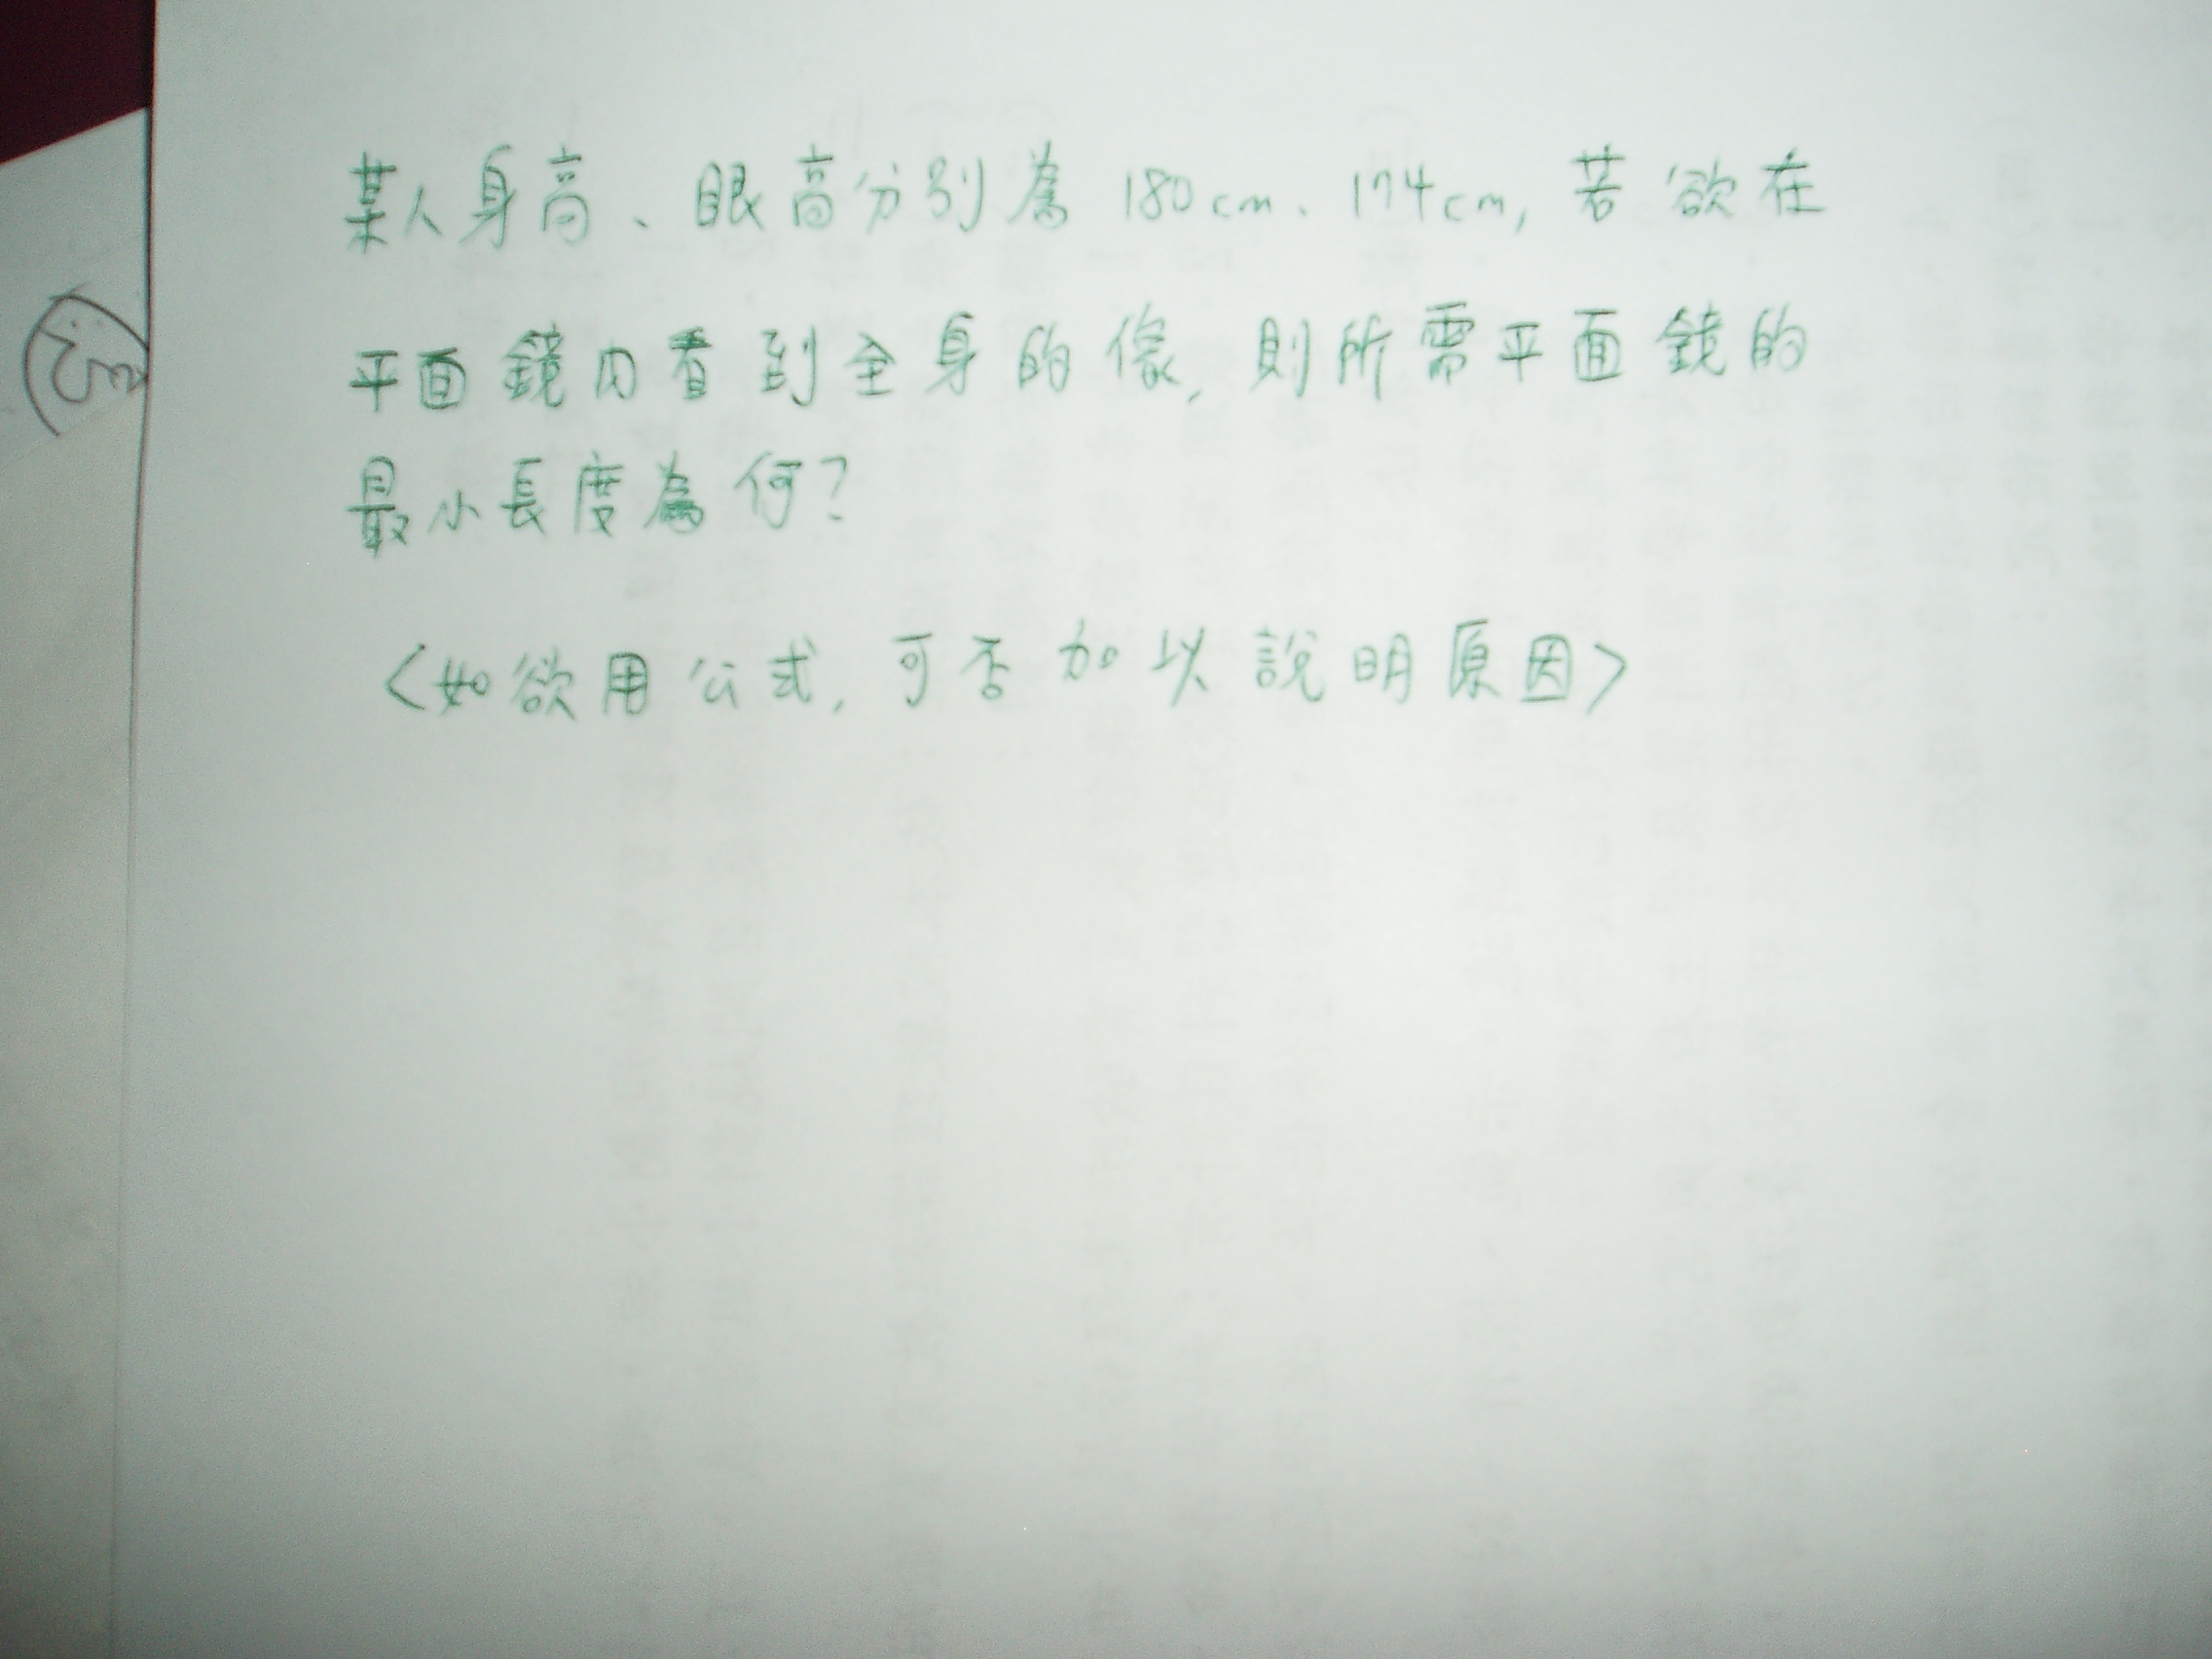 某人身高、眼高分別為 180cm、174cm, 若欲在
平面鏡內看到全身的像, 則所需平面鏡的
最小長度為何?
<如欲用公式, 可否加以說明原因>